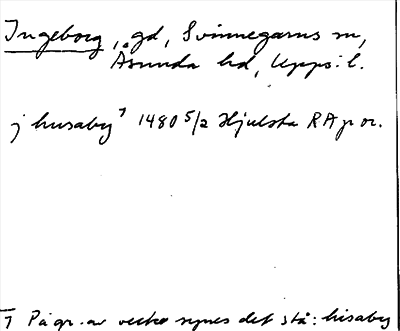 Ingeborg, gd, Svinnegarns sn,
Åsunda hd, Upps. l.
j husaby ⁊ 1480 5/2 Hjulsta RAp or.
⁊ På gr. av veck synes det stå: hisaby